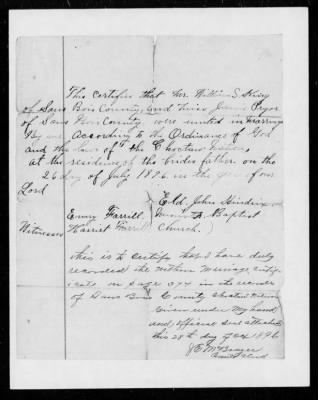 This certifies that Mr. William S. King
of Sans Bois County, and Miss Jennie Pryor
of Sans Bois County were united in marriage
By me According to the Ordinance of God
and the laws of the Choctaw Nation,
at the residence of the brides father on the
26 day of July 1896 in the year of our
Lord
Eld. John Hendrix
Emry Farrill Baptist
Witnesses Harriet Farrill Church.)
this is to certify that I have duly
recorded the within Marriage certifi-
icate on page 374 in the records
of Sans Bois County Choctaw Nation
Given under my hand
and official seal attached
this 28th day of 1896
County Clerk